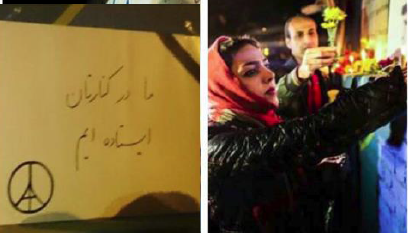 ما در کنارتان
ایستاده ایم